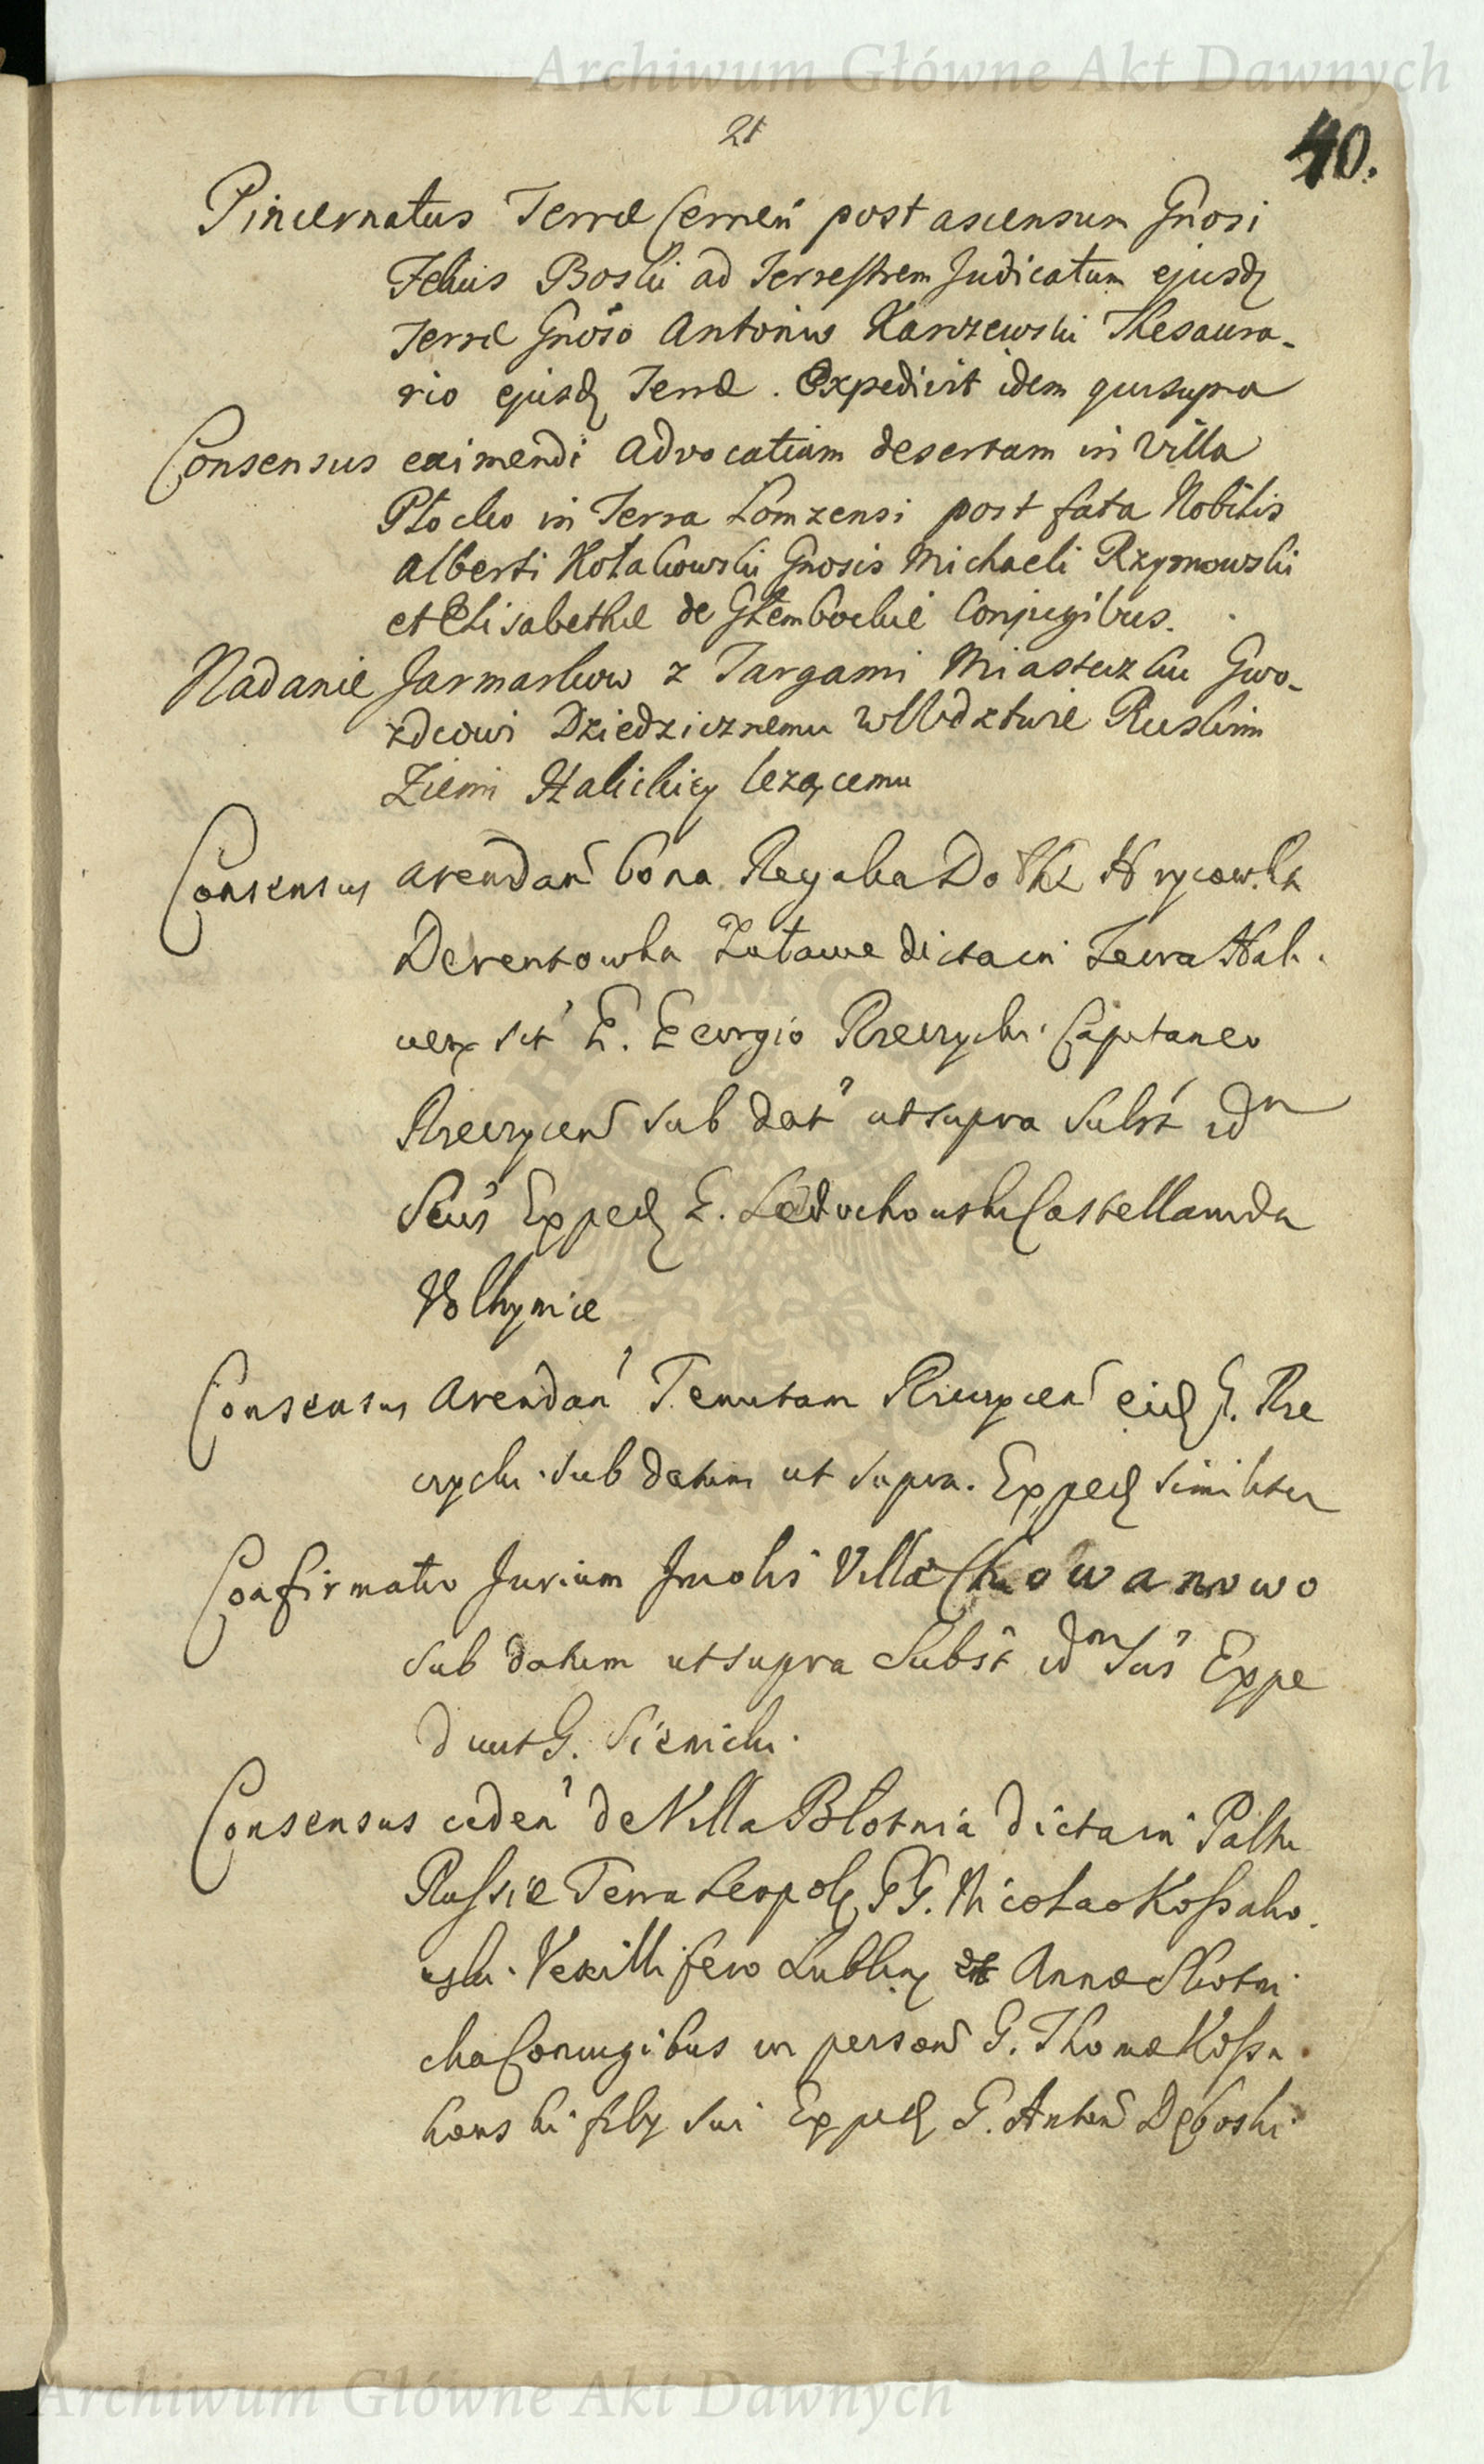 Archiwum Główne Akt Dawnych
21
40.
Pincernatus Terræ Cernen̄ post ascensum Gnosi
Felicis Boski ad Terrestrem Judicatum ejusd
Terræ Gnoso Antonio Karczewski Thesaura-
rio ejusd Terræ. Expedivit idem qui supra
Consensus eximendi Advocatiam desertam in Villa
Ptocko in Terra Łomzensi post fata Nobilis
Alberti Kołakowski Gnosis Michaeli Rzymowski
et Elisabethæ de Głembockie Conjugibus.
Nadanie Jarmarkow z Targami Miasteczku Gwo-
zdcowi Dziedzicznemu w Wdztwie Ruskim
Ziemi Halickiey lezącemu
Consensus arendan̄ bona Regalia Hrycowka
Derenkowka dicta in Terra Hali-
cien sit G. Georgio Rzeczycki Capitaneo
Rzeczycen̄ sub dat ut supra Subst id
Scus Exped G. Ledochowski Castellanida
Volhyniæ
Consensus arendan Tenutam Rzeczycen̄ eid G. Rze
czycki sub datum ut supra. Exped similiter
Confirmatio Jurium Incolis Villæ Chowanowo
sub datum ut supra Subst id Scus Expe
divit G. Sienicki.
Consensus ceden̄ de Villa Błotnia dicta in Palttu
Russiæ Terra Leopol GG. Nicolao Kossako.
wski Vexillifero Lublin et Annæ Skotni
cka Conjugibus in person̄ G. Thomæ Kossa.
kowski fily sui Exped G. Anton̄ Dęboski
Archiwum Główne Akt Dawnych